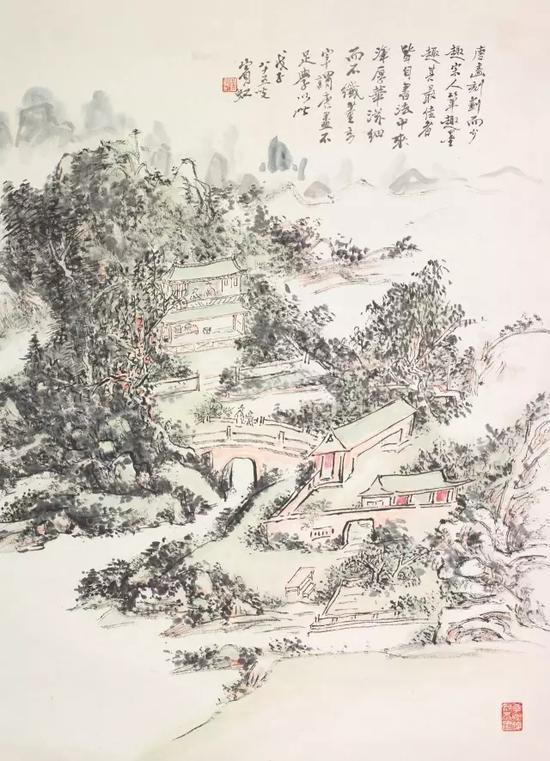 唐畫刻劃而少
趣宋人筆趣墨
趣其最佳者
皆自書法中來
渾厚華滋細
而不纖董玄
宰謂唐畫不
足學以此
戊子
賓虹